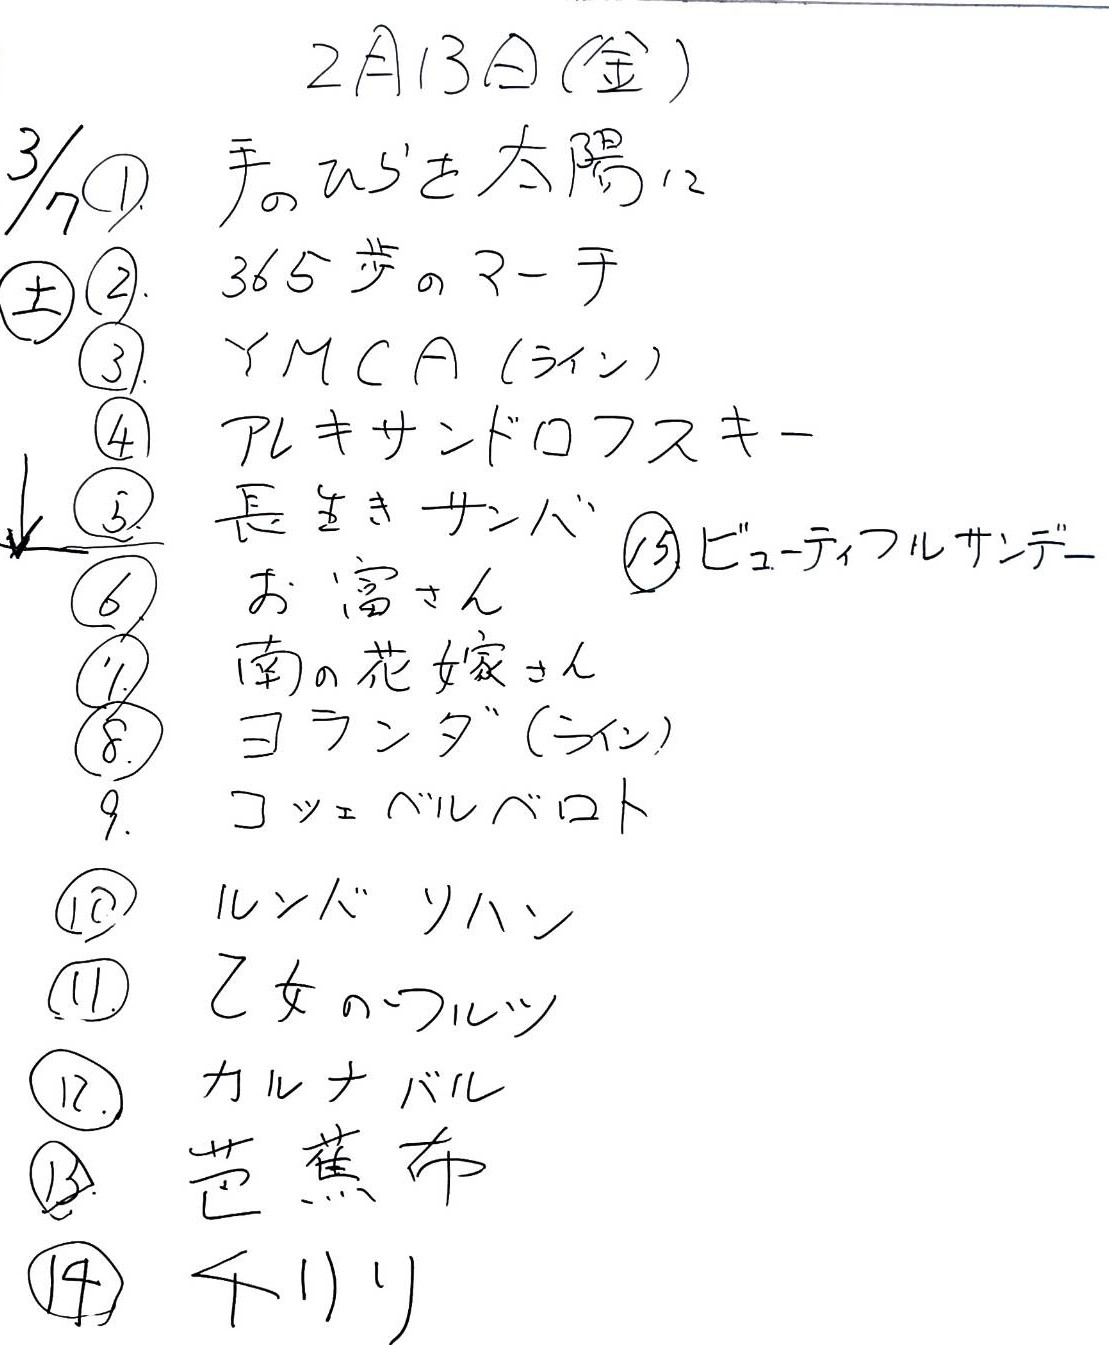 2月13日(金)
3/7
土
①. 手のひらを太陽に
②. 365歩のマーチ
③. YMCA (ライン)
④ アレキサンドロフスキー
⑤. 長生きサンバ
⑮ ビューティフルサンデー
⑥ お富さん
⑦. 南の花嫁さん
⑧. ヨランダ(ライン)
9. コツェベルベロト
⑩ ルンバ リハン
⑪. 乙女のワルツ
⑫. カルナバル
⑬. 芭蕉布
⑭ チリリ